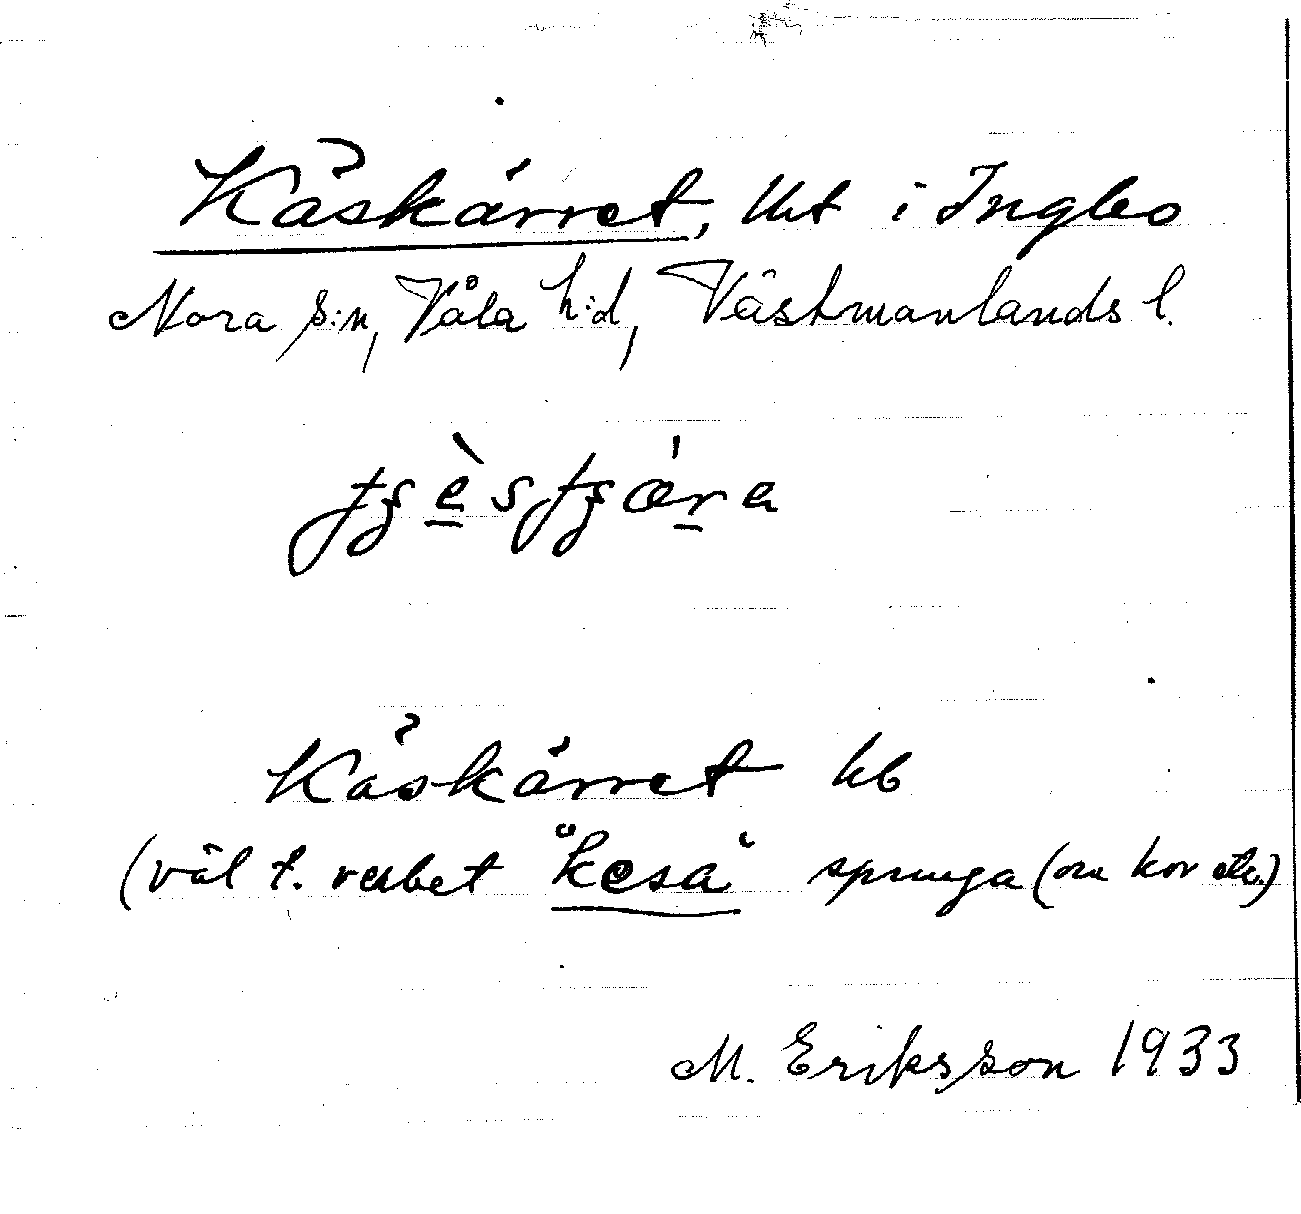 Käskärret, Utt i Ingbo
Nora s:n, Våla h:d, Västmanlands l.
tjèstjæ̀ra
Käskärret
(väl t. verbet "kesa" springa (om kor etc.)
M. Eriksson 1933